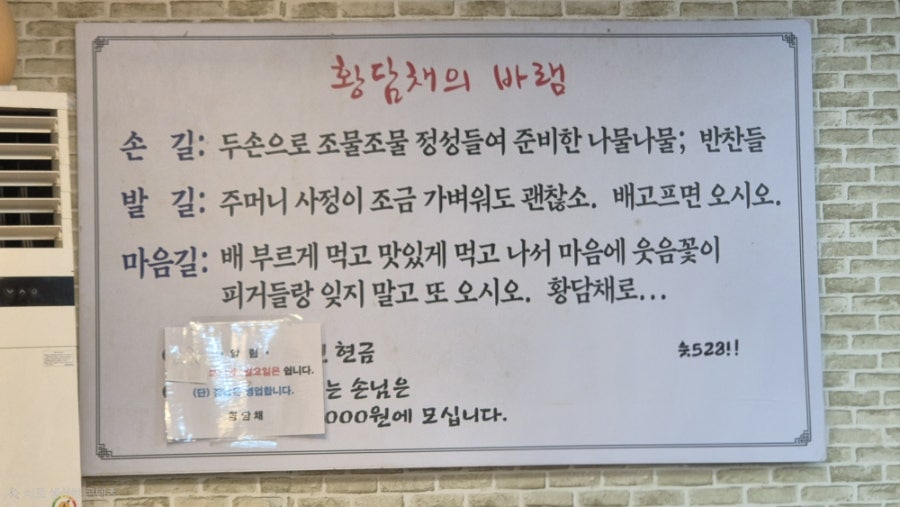 황담채의 바램
손 길: 두손으로 조물조물 정성들여 준비한 나물나물; 반찬들
발 길: 주머니 사정이 조금 가벼워도 괜찮소. 배고프면 오시오.
마음길: 배 부르게 먹고 맛있게 먹고 나서 마음에 웃음꽃이
피거들랑 잊지 말고 또 오시오. 황담채로...
현금
숯523!!
는 손님은
000원에 모십니다.
알 림
쉽니다.
(단) 영업합니다.
황담채